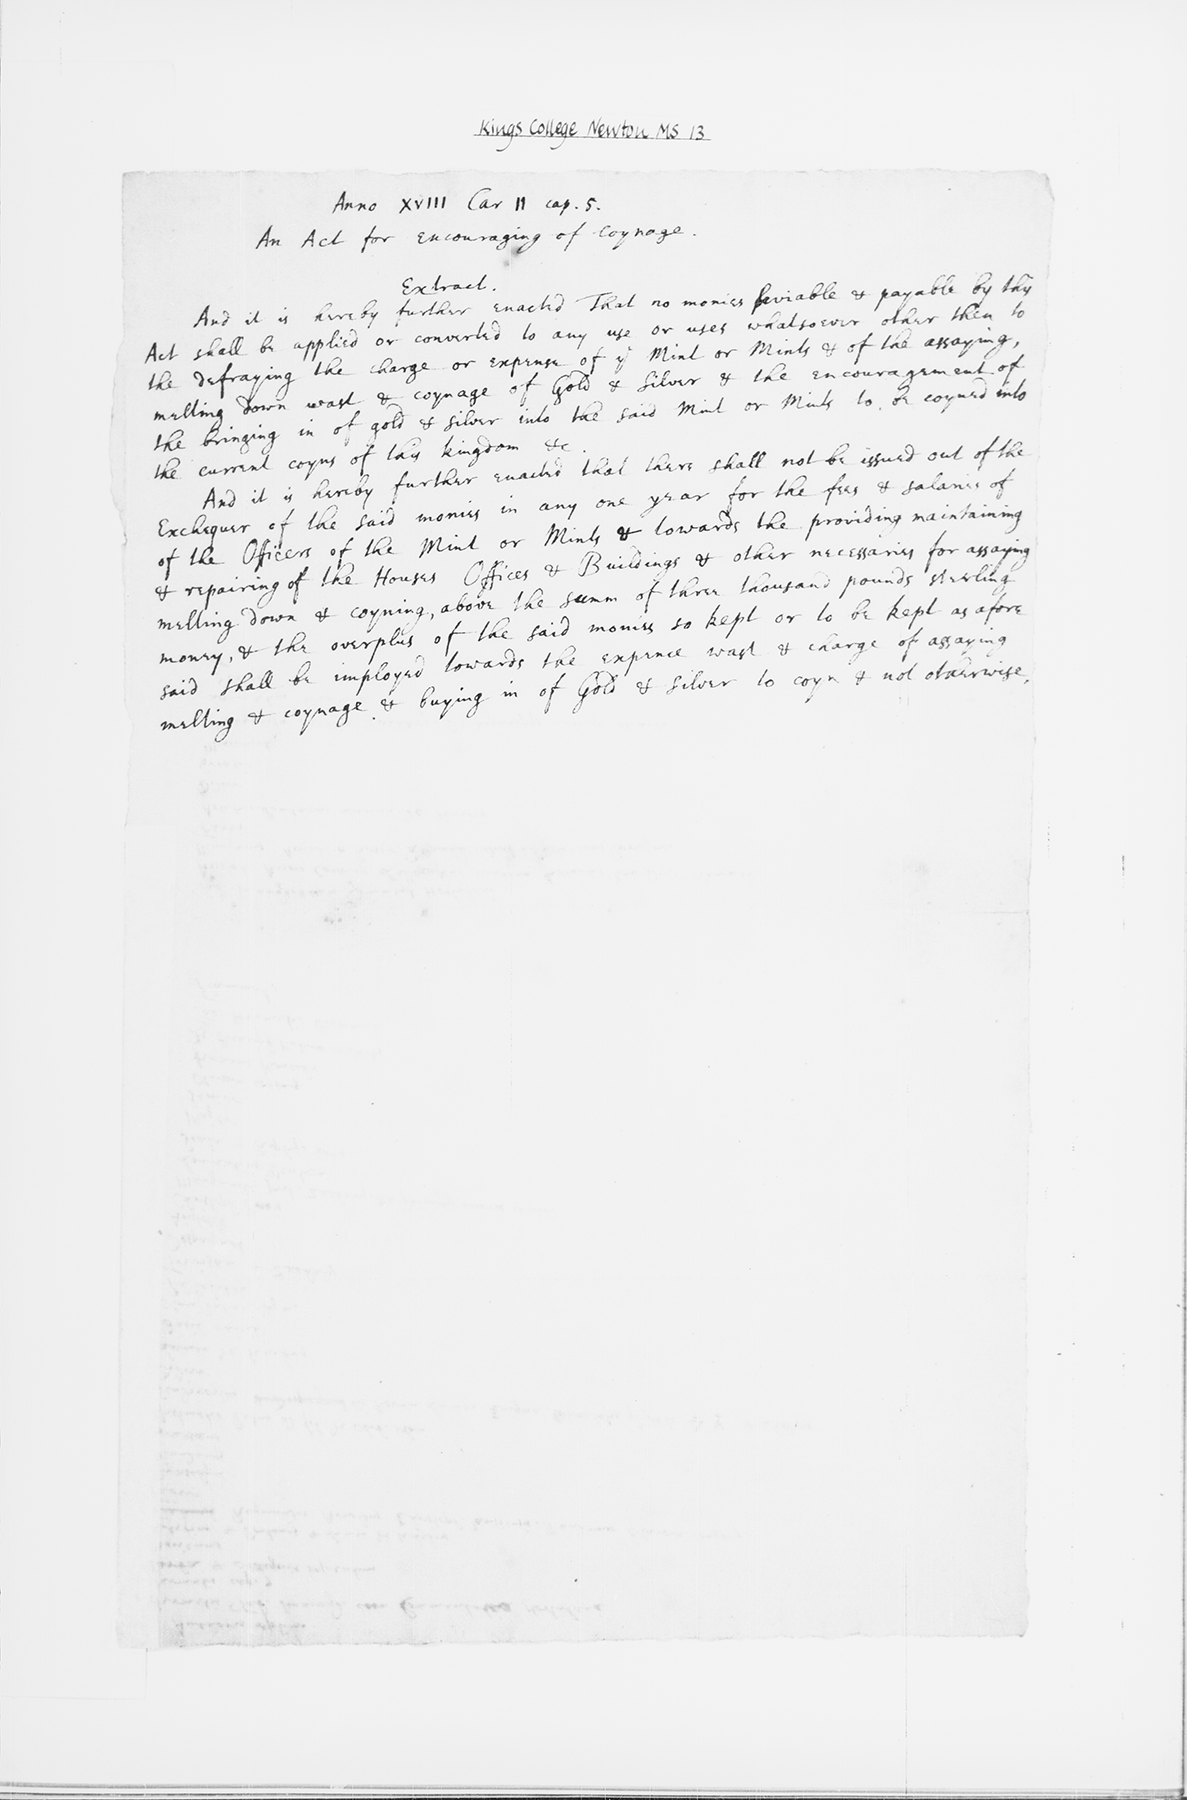 Kings College Newton MS 13
Anno XVIII Car II cap. 5.
An Act for encouraging of coynage.
Extract.
And it is hereby further enacted That no monies leviable & payable by this
Act shall be applied or converted to any use or uses whatsoever other then to
the defraying the charge or expense of ye Mint or Mints & of the assaying,
melting down wast & coynage of Gold & Silver & the encouragement of
the bringing in of gold & silver into the said Mint or Mints to be coyned into
the current coyns of this kingdom &c.
And it is hereby further enacted that there shall not be issued out of the
Exchequer of the said monies in any one year for the fees & salaries of
of the Officers of the Mint or Mints & towards the providing maintaining
& repairing of the Houses Offices & Buildings & other necessaries for assaying
melting down & coyning, above the summ of three thousand pounds sterling
money, & the overplus of the said monies so kept or to be kept as afore
said shall be imployed towards the expence wast & charge of assaying
melting & coynage & buying in of Gold & Silver to coyn & not otherwise.